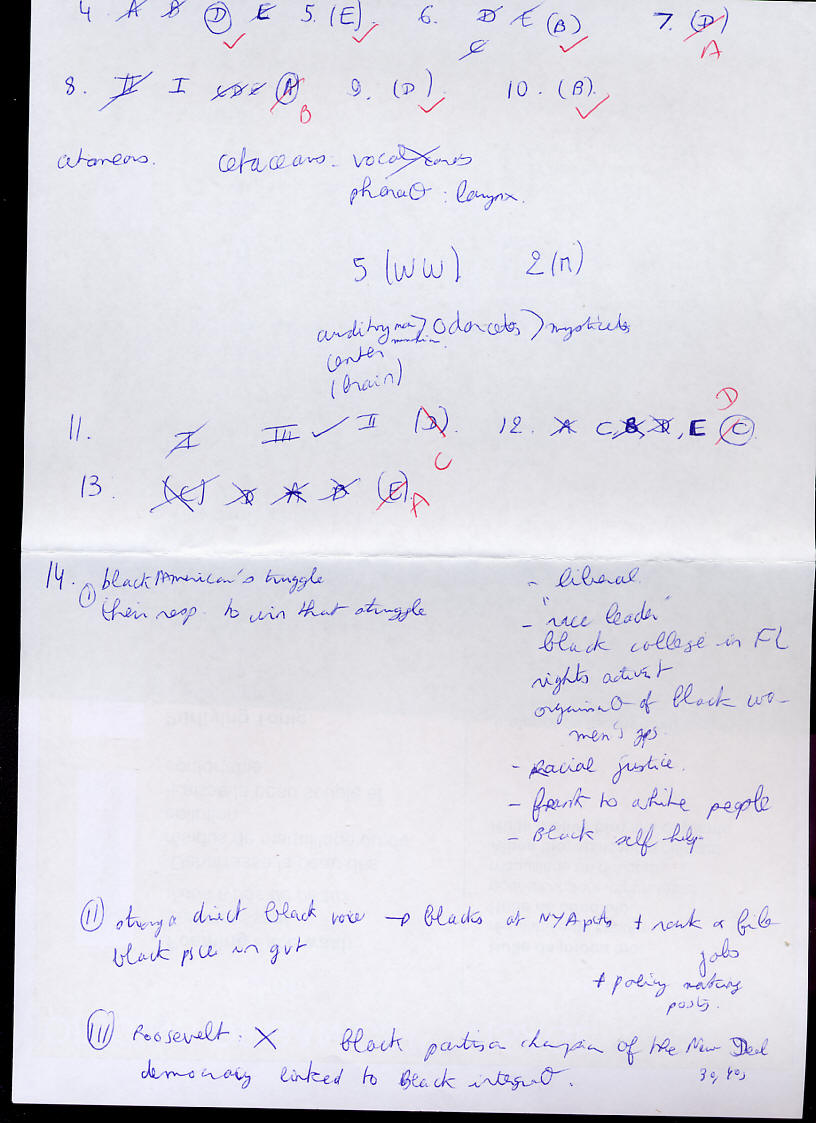 4. A B D E 5. (E). 6. D E (B) 7. (D)
C A
8. II I C D E A 9. (D) 10. (B).
B
cetaneous. cetaceans - vocal cords
pharaθ : larynx.
5 (WW) 2 (M)
auditory > Odoncetes > mysticetes
center
(brain)
D
11. I III ✓ II (D). 12. A C, B, D, E C
C
13. (C) D A B (E).
A
14. black American's struggle - liberal.
① their resp. to win that struggle
- "race leader"
black college in FL
rights activist
organisaθ of black wo-
men's gps.
- Racial justice.
- frank to white people
- Black self help
II strong & direct black voice → blacks at NYA + rank & file
black in gvt jobs
+ policy making
posts.
III Roosevelt : X black partisan champion of the New Deal
democracy linked to Black integraθ. 30, 40s